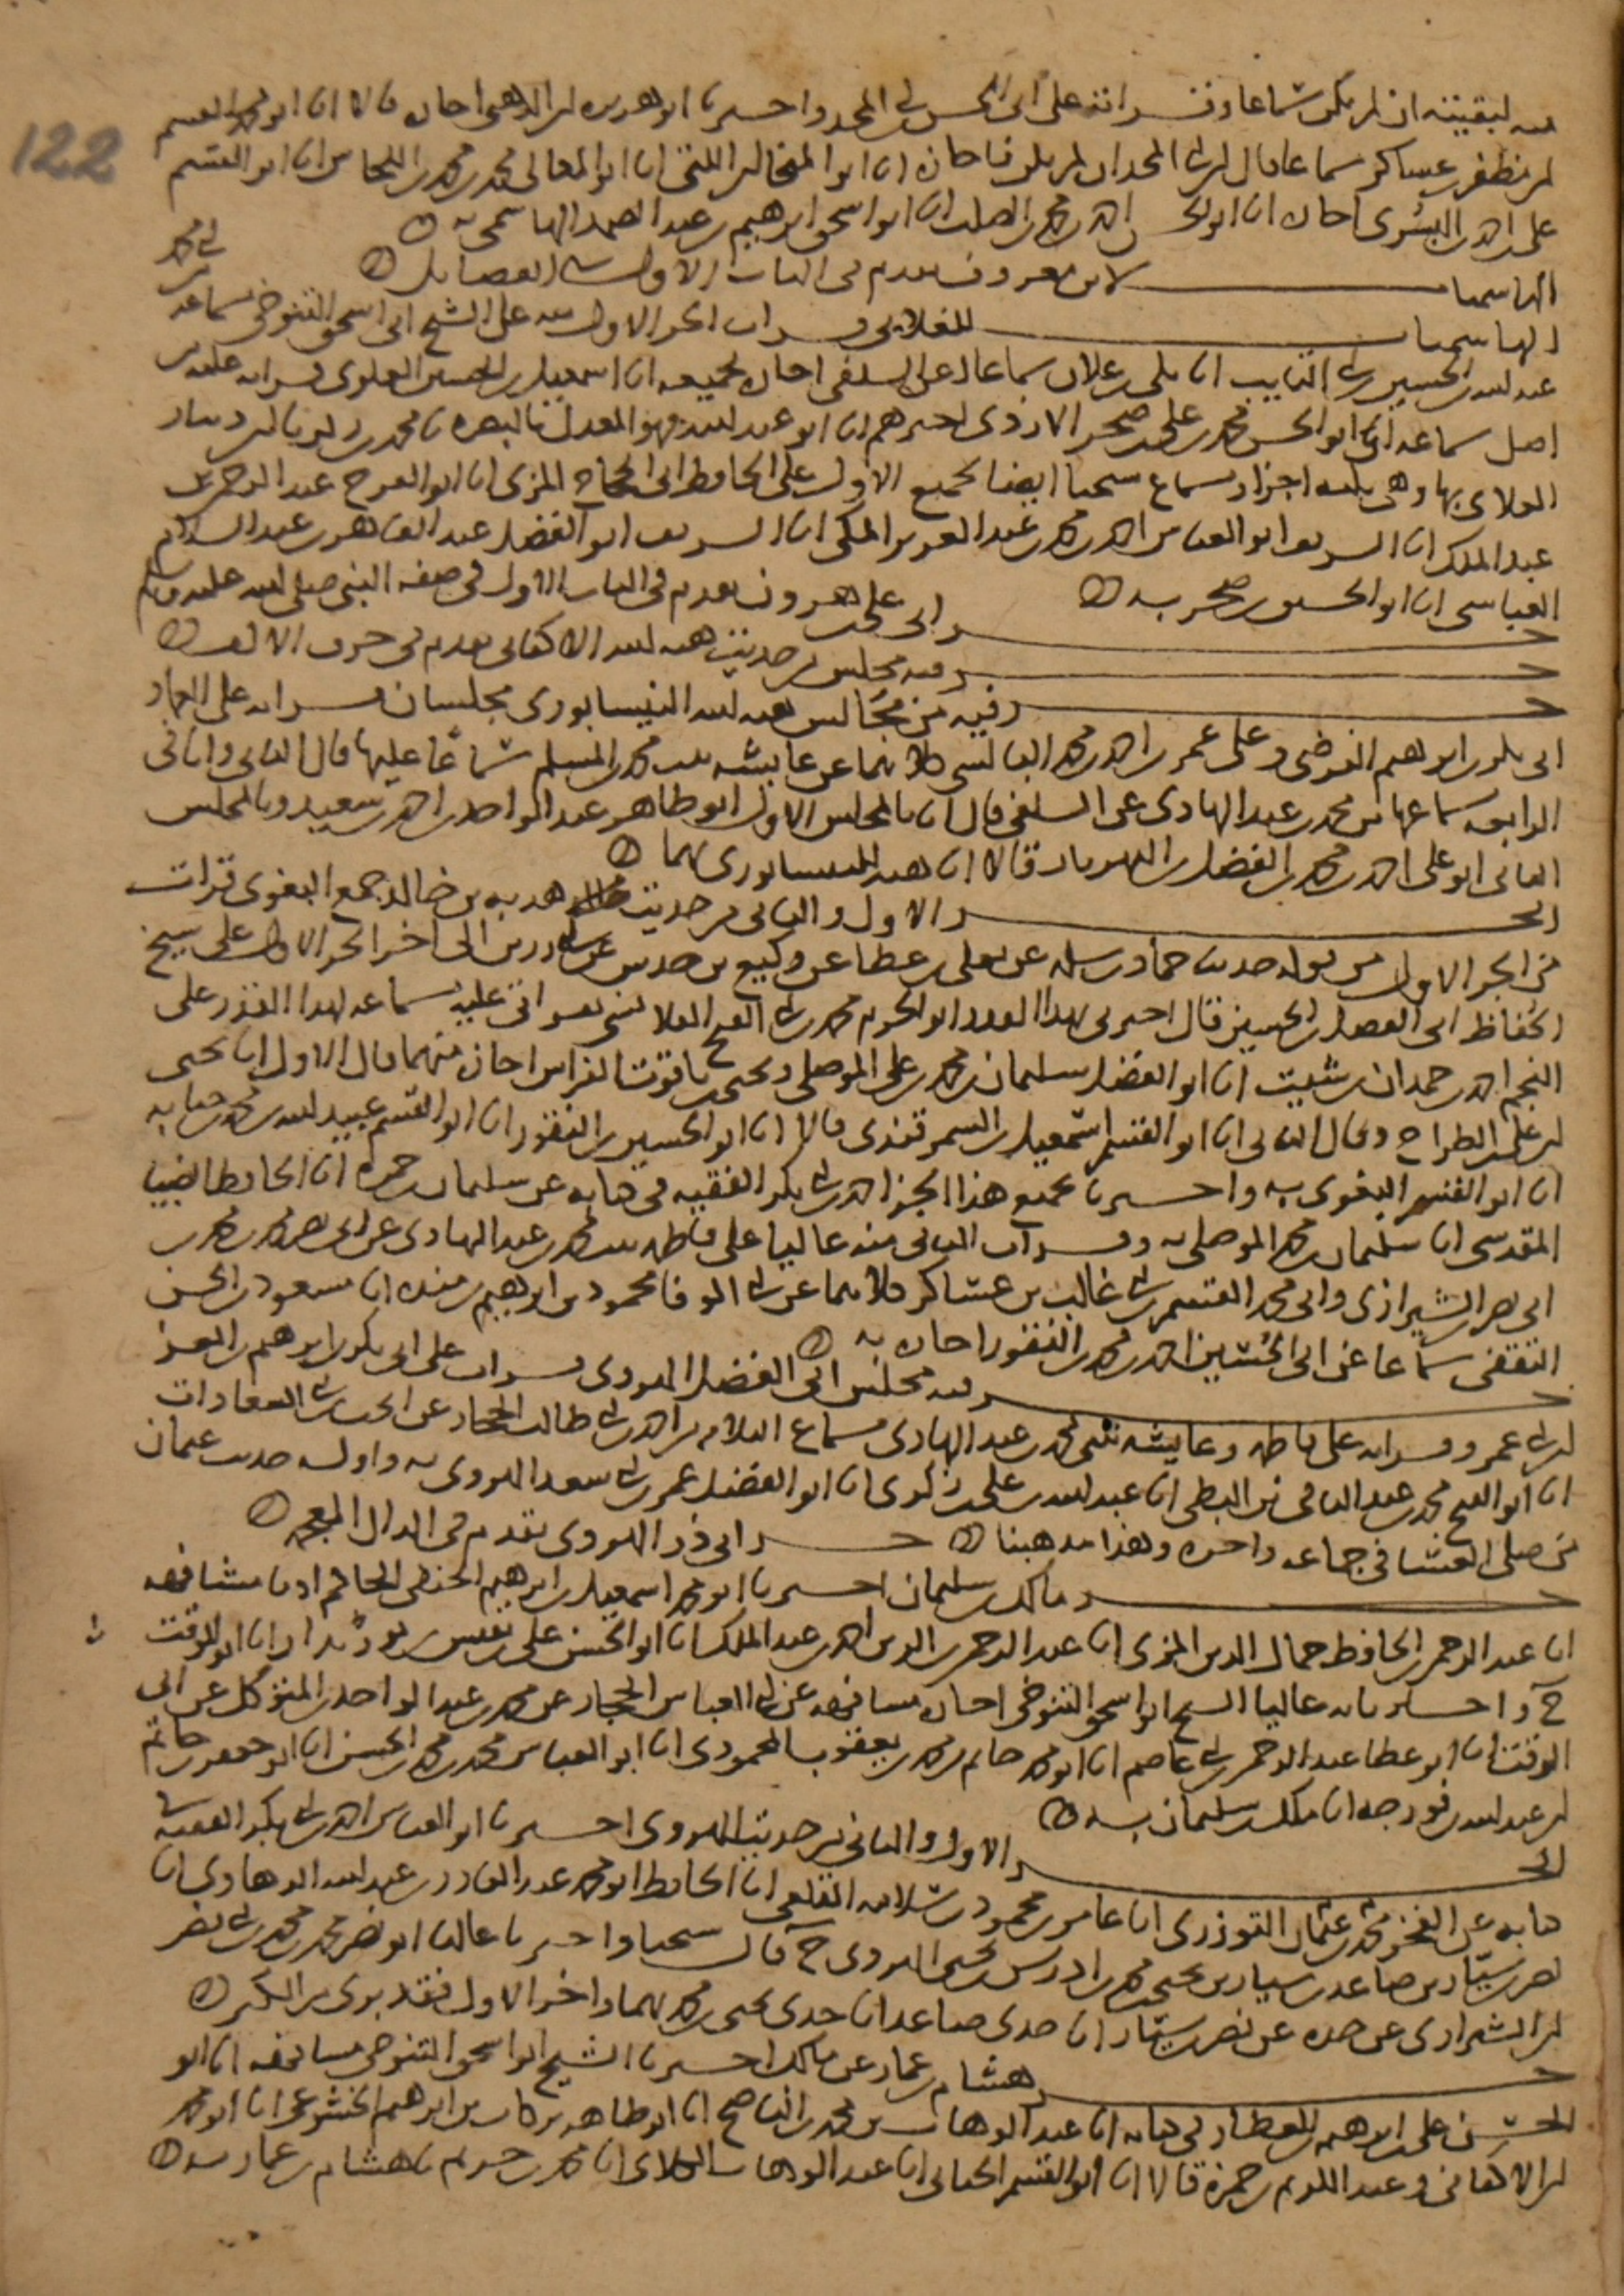 122
منه لبقيته ان لم يكن سماعا وقراته على ابى الحسن بن ابى المجد واخبرنا ابو هريرة بن الذهبى اجازة قالا انا ابو محمد القسم
بن مظفر بن عساكر سماعا قال بن ابى المجد ان لم يكن فاجازة انا ابو المنجا بن اللتى انا ابو المعالى محمد بن محمد بن النحاس انا ابو القسم
على بن احمد بن البسرى اجازة انا ابو الحسن احمد بن محمد بن الصلت انا ابو اسحق ابرهيم بن عبد الصمد الهاشمى به
الهاشميات لابن معروف تقدم فى الباب الاول فى الفضايل
الهاشميات للغلابى قرات الجزء الاول منه على الشيخ ابى اسحق التنوخى بسماعه
عبد الله بن الحسين بن ابى التايب انا مكى بن علان سماعا عن السلفى اجازة بجميعه انا اسمعيل بن الحسن العلوى قراءة عليه من
اصل سماعه انا ابو الحسن محمد بن على بن صخر الازدى اخبرهم انا ابو عبد الله فهو المعدل بالبصرة نا محمد بن زكريا بن دينار
الغلابى بها وهى ثلثه اجزاء وسماع شيخنا ايضا لجميع الاول على الحافظ ابى الحجاج المزى انا ابو الفرج عبد الرحمن بن
عبد الملك انا الشريف ابو العباس احمد بن محمد بن عبد العزيز المكى انا الشريف ابو الفضل عبد القاهر بن عبد السلام
العباسى انا ابو الحسن بن صخر به
حديث ابى على بن هرون تقدم فى الباب الاول فى صفة النبى صلى الله عليه وسلم
فيه مجلس من حديث هبة الله الاكفانى تقدم فى حرف الالف
فيه من مجالس هبة الله النيسابورى مجلسان قراته على العماد
ابى بكر بن ابرهيم الفرضى وعلى عمر بن احمد بن محمد البالسى كلاهما عن عايشه بنت محمد بن المسلم سماعا عليها قال الثانى وانا فى
الرابعه بسماعها من محمد بن عبد الهادى عن السلفى قال انا بالمجلس الاول ابو طاهر عبد الواحد بن احمد بن سعيد وبالمجلس
الثانى ابو على احمد بن محمد بن الفضل بن شهريار قالا انا هبة الله النيسابورى بهما
الجزء الاول والثانى من حديث هدبه بن خالد جمع البغوى قرات
من الجزء الاول من قوله حديث حماد بن سلمه عن يعلى بن عطا عن وكيع بن حدس عن ابى رزين الى اخر الجزء الاول على شيخ
الحفاظ ابى الفضل بن الحسين قال اخبرنى بهذا القدر ابو الحرم محمد بن ابى الفتح القلانسى بقراتى عليه بسماعه لهذا القدر على
النجم احمد بن حمدان بن شبيب انا ابو الفضل سليمان بن محمد بن على الموصلى ويحيى بن ياقوت الفراش اجازة منهما قال الاول انا يحيى
بن على بن الطراح وقال الثانى انا ابو القسم اسمعيل بن السمرقندى قالا انا ابو الحسين بن النقور انا ابو القسم عبيد الله بن محمد بن حبابه
انا ابو القسم البغوى به واخبرنا بجميع هذا الجزء احمد بن ابى بكر الفقيه فى كتابه عن سليمان بن حمزة انا الحافظ الضيا
المقدسى انا سليمان بن محمد الموصلى به وقرات الثانى منه عاليا على فاطمه بنت محمد بن عبد الهادى عن ابى نصر محمد بن محمد بن
ابى نصر الشيرازى وابى محمد القسم بن ابى غالب بن عساكر كلاهما عن ابى الوفا محمود بن ابرهيم بن منده انا مسعود بن الحسن
الثقفى سماعا عن ابى الحسين احمد بن محمد بن النقور اجازة به
فيه مجلس ابى الفضل الهروى قرات على ابى بكر بن ابرهيم بن العز
بن ابى عمر وقراته على فاطمه وعايشه بنتى محمد بن عبد الهادى بسماع الثلاثه من احمد بن ابى طالب الحجار عن الحسن بن السعادات
انا ابو الفتح محمد بن عبد الباقى بن البطى انا عبد الله بن على بن زكرى انا ابو الفضل عمر بن ابى سعد الهروى به واوله حديث عثمان
من صلى العشا فى جماعه واخره وهذا مذهبنا حديث ابى ذر الهروى تقدم فى الذال المعجمه
مالك بن سليمان اخبرنا ابو محمد اسمعيل بن ابرهيم الحنفى الحاكم اذنا مشافهه
انا عبد الرحمن الحافظ جمال الدين المزى انا عبد الرحمن بن الزين احمد بن عبد الملك انا ابو الحسن على بن نفيس بن بورنداز انا ابو الوقت
ح واخبرنا به عاليا الشيخ ابو اسحق التنوخى اجازة مشافهه عن ابى العباس الحجار عن محمد بن عبد الواحد بن المتوكل عن ابى
الوقت انا ابو عطا عبد الرحمن بن ابى عاصم انا ابو محمد حاتم بن محمد بن يعقوب المحمودى انا ابو العباس محمد بن محمد بن الحسن انا ابو جعفر حاتم
بن عبد الله بن فورجه انا مالك بن سليمان به
الجزء الاول والثانى من حديث الهروى اخبرنا ابو العباس احمد بن ابى بكر الفقيه فى
كتابه عن الفخر محمد بن عثمان التوزرى انا عامر بن محمود بن سلامه القلعى انا الحافظ ابو محمد عبد القادر بن عبد الله الرهاوى انا
نصر بن سيار بن صاعد بن سيار بن يحيى بن محمد بن ادريس بن يحيى الهروى ح قال شيخنا واخبرنا عاليا ابو نصر محمد بن محمد بن ابى نصر
بن الشيرازى عن جده عن نصر بن سيار انا جدى صاعد انا جدى يحيى بن محمد بهما واخر الاول فقد برى من الكبر
هشام بن عمار عن مالك اخبرنا الشيخ ابو اسحق التنوخى مشافهه انا ابو
الحسن على بن ابرهيم بن العطار فى كتابه انا عبد الوهاب بن محمد بن الناصح انا ابو طاهر بركات بن ابرهيم الخشوعى انا ابو محمد
بن الاكفانى وعبد الكريم بن حمزة قالا انا ابو القسم الحنائى انا عبد الوهاب الكلابى انا محمد بن خريم نا هشام بن عمار به